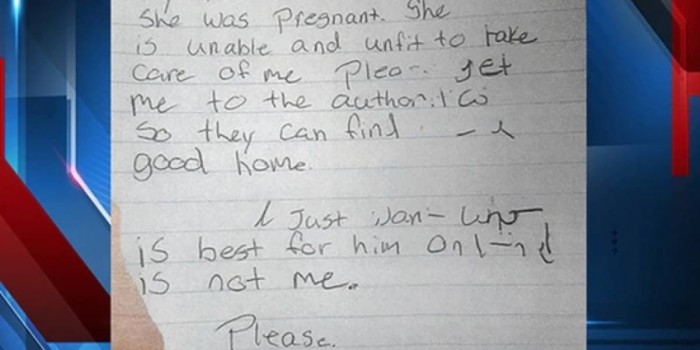 she was Pregnant. She
is unable and unfit to take
care of me get
me to the
so they can find
good home.
I Just
is best for him
is not me.
Please.